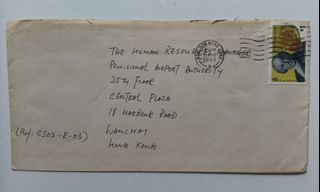 The Human Resources Manager
Provisional Airport Authority
25th Floor
Central Plaza
18 Harbour Road
(Ref: 5502-R-03)
Wanchai
Hong Kong